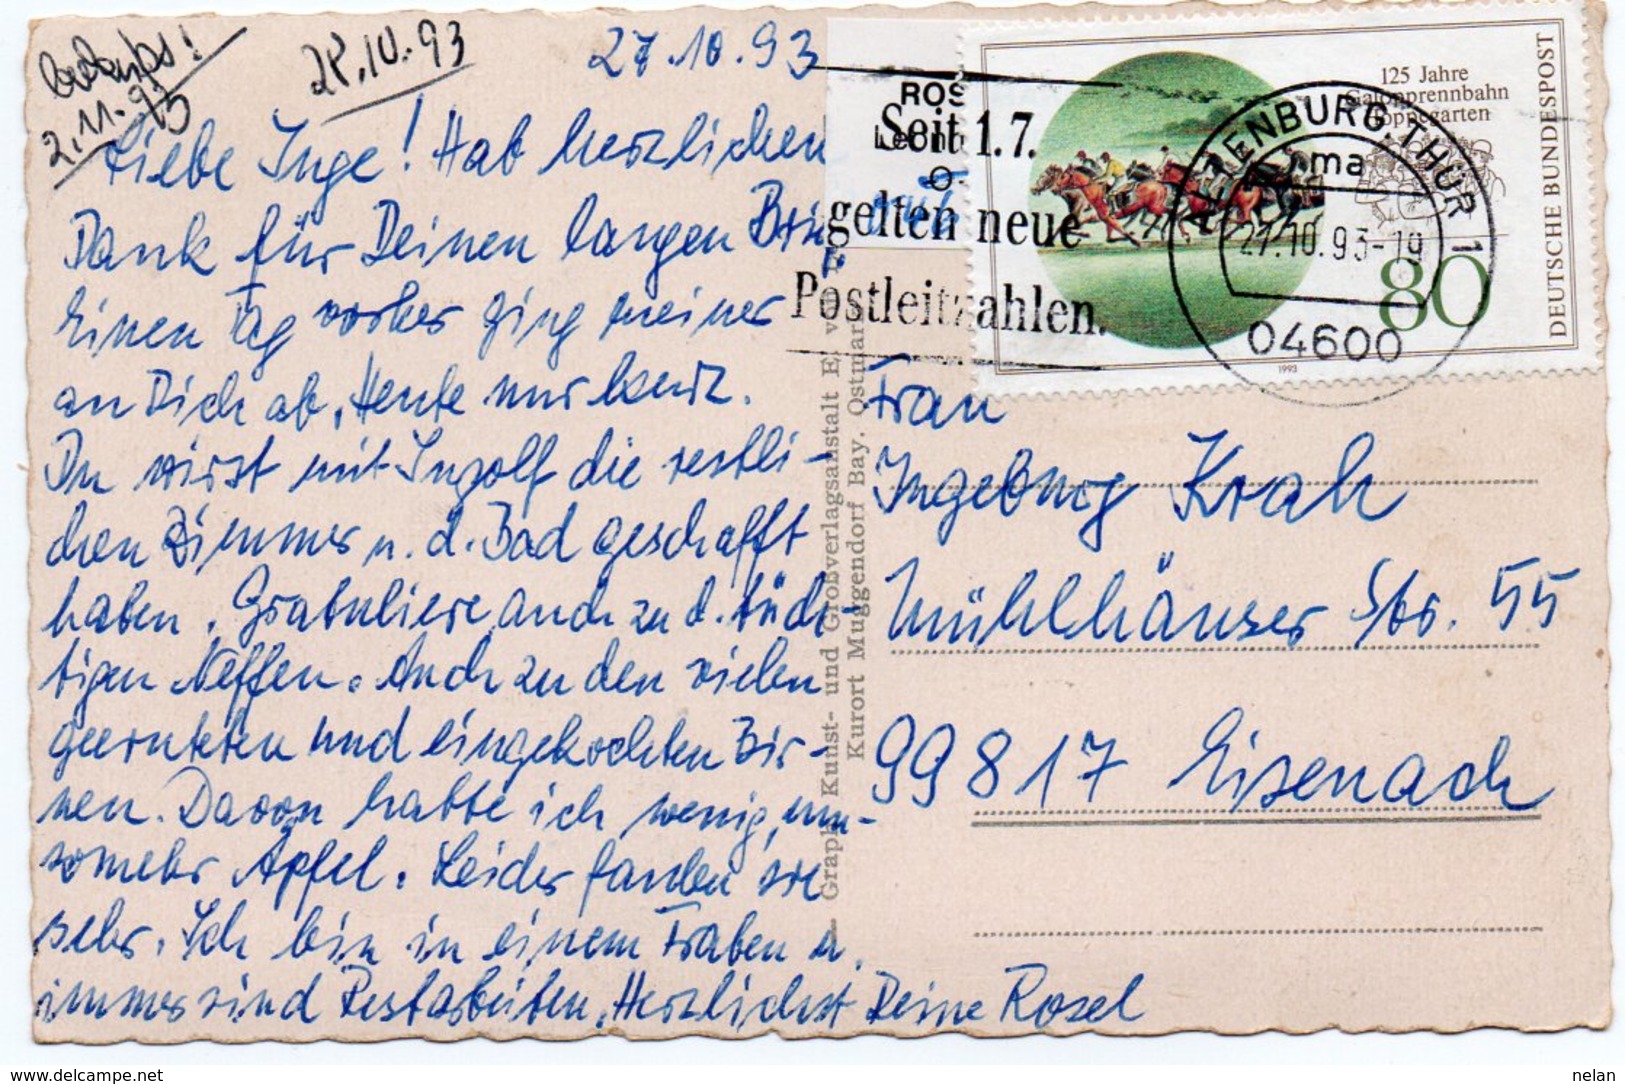 2.11.93
28.10.93
27.10.93
Liebe Inge! Hab herzlichen
Dank für Deinen langen Brief
Einen Tag vorher ging meiner
an Dich ab. Heute nur kurz.
Du wirst mit Ingolf die restli-
chen Zimmer u. d. Bad geschafft
haben. Gratuliere auch zu d. tüch-
tigen Neffen. Auch zu den vielen
geernteten und eingekochten Bir-
nen. Davon hatte ich wenig, um-
somehr Äpfel. Leider faulen sie
sehr. Ich bin in einem Traben u.
immer sind Restarbeiten. Herzlichst Deine Rosel
ROS
Seit 1.7.
gelten neue
Postleitzahlen.
125 Jahre
Galopprennbahn
Hoppegarten
DEUTSCHE BUNDESPOST
80
1993
ALTENBURG, THÜR 1
ma
27.10.93-19
04600
Graph. Kunst- und Großverlagsanstalt E.
Kurort Muggendorf Bay. Ostmark
Frau
Ingeburg Krah
Mühlhäuser Str. 55
99817 Eisenach
www.delcampe.net
nelan